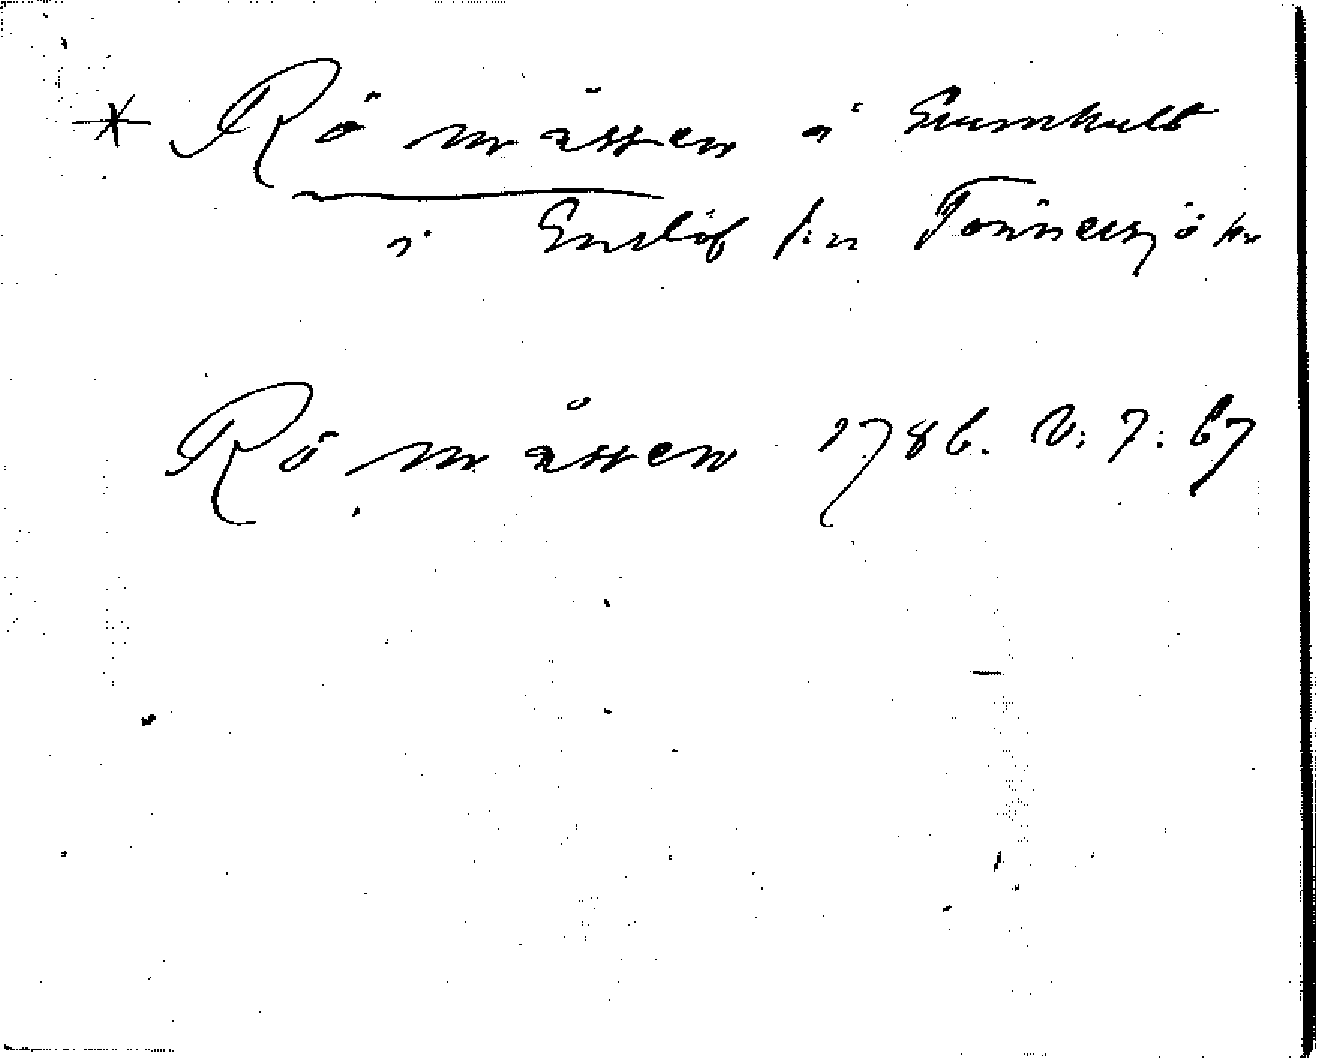 * Rö måssen i Grumhult
i Enslöf s:n Tönnersjö hd
Rö måssen 1786. V: 7: 67